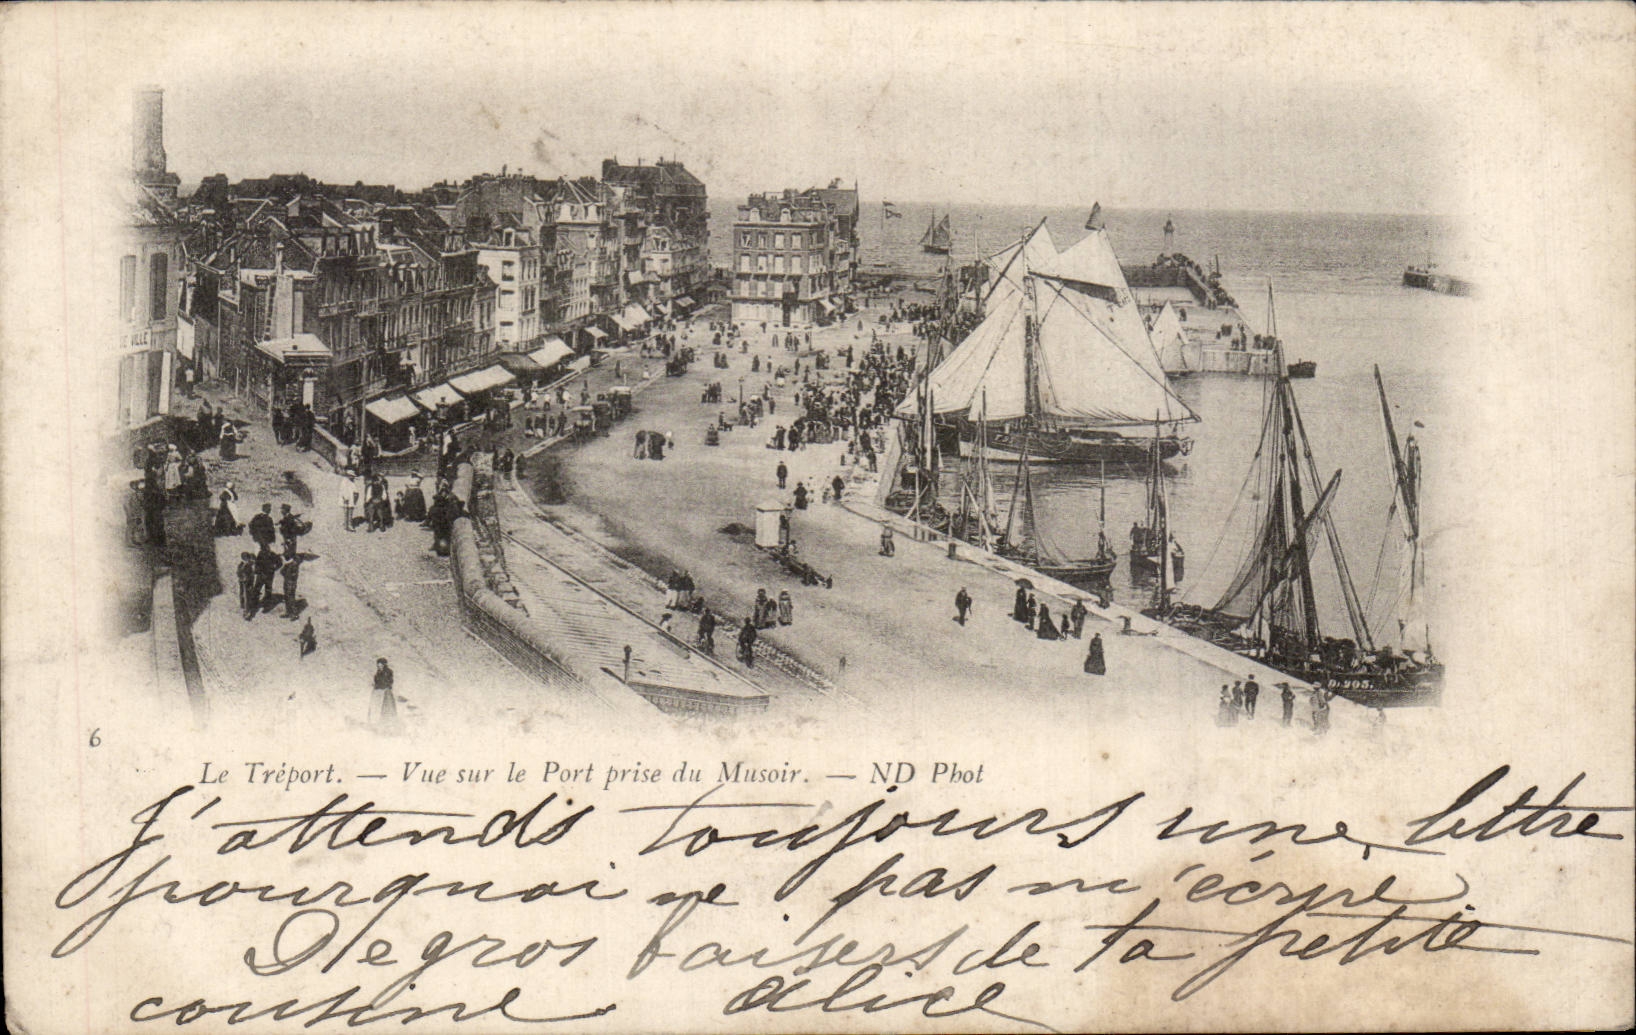 DE VILLE
D. 205.
6
Le Tréport. — Vue sur le Port prise du Musoir. — ND Phot
J'attends toujours une lettre
pourquoi ne pas m'écrire
De gros baisers de ta petite
cousine Alice